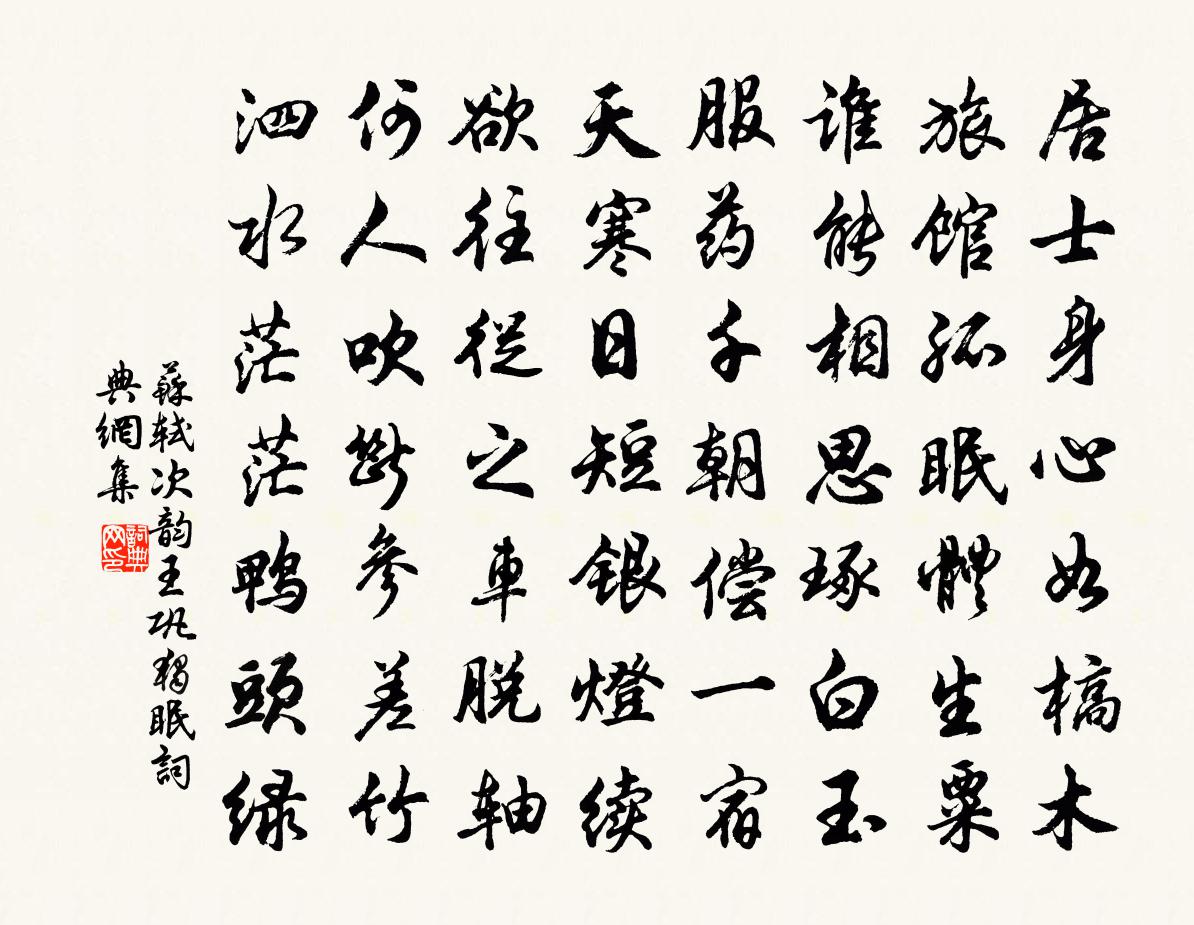 居士身心如槁木
旅馆孤眠體生粟
谁能相思琢白玉
服药千朝偿一宿
天寒日短银燈续
欲往従之車脱轴
何人吹断參差竹
泗水茫茫鸭頭绿
蘇轼次韵王巩獨眠詞
典網集
詞典网印